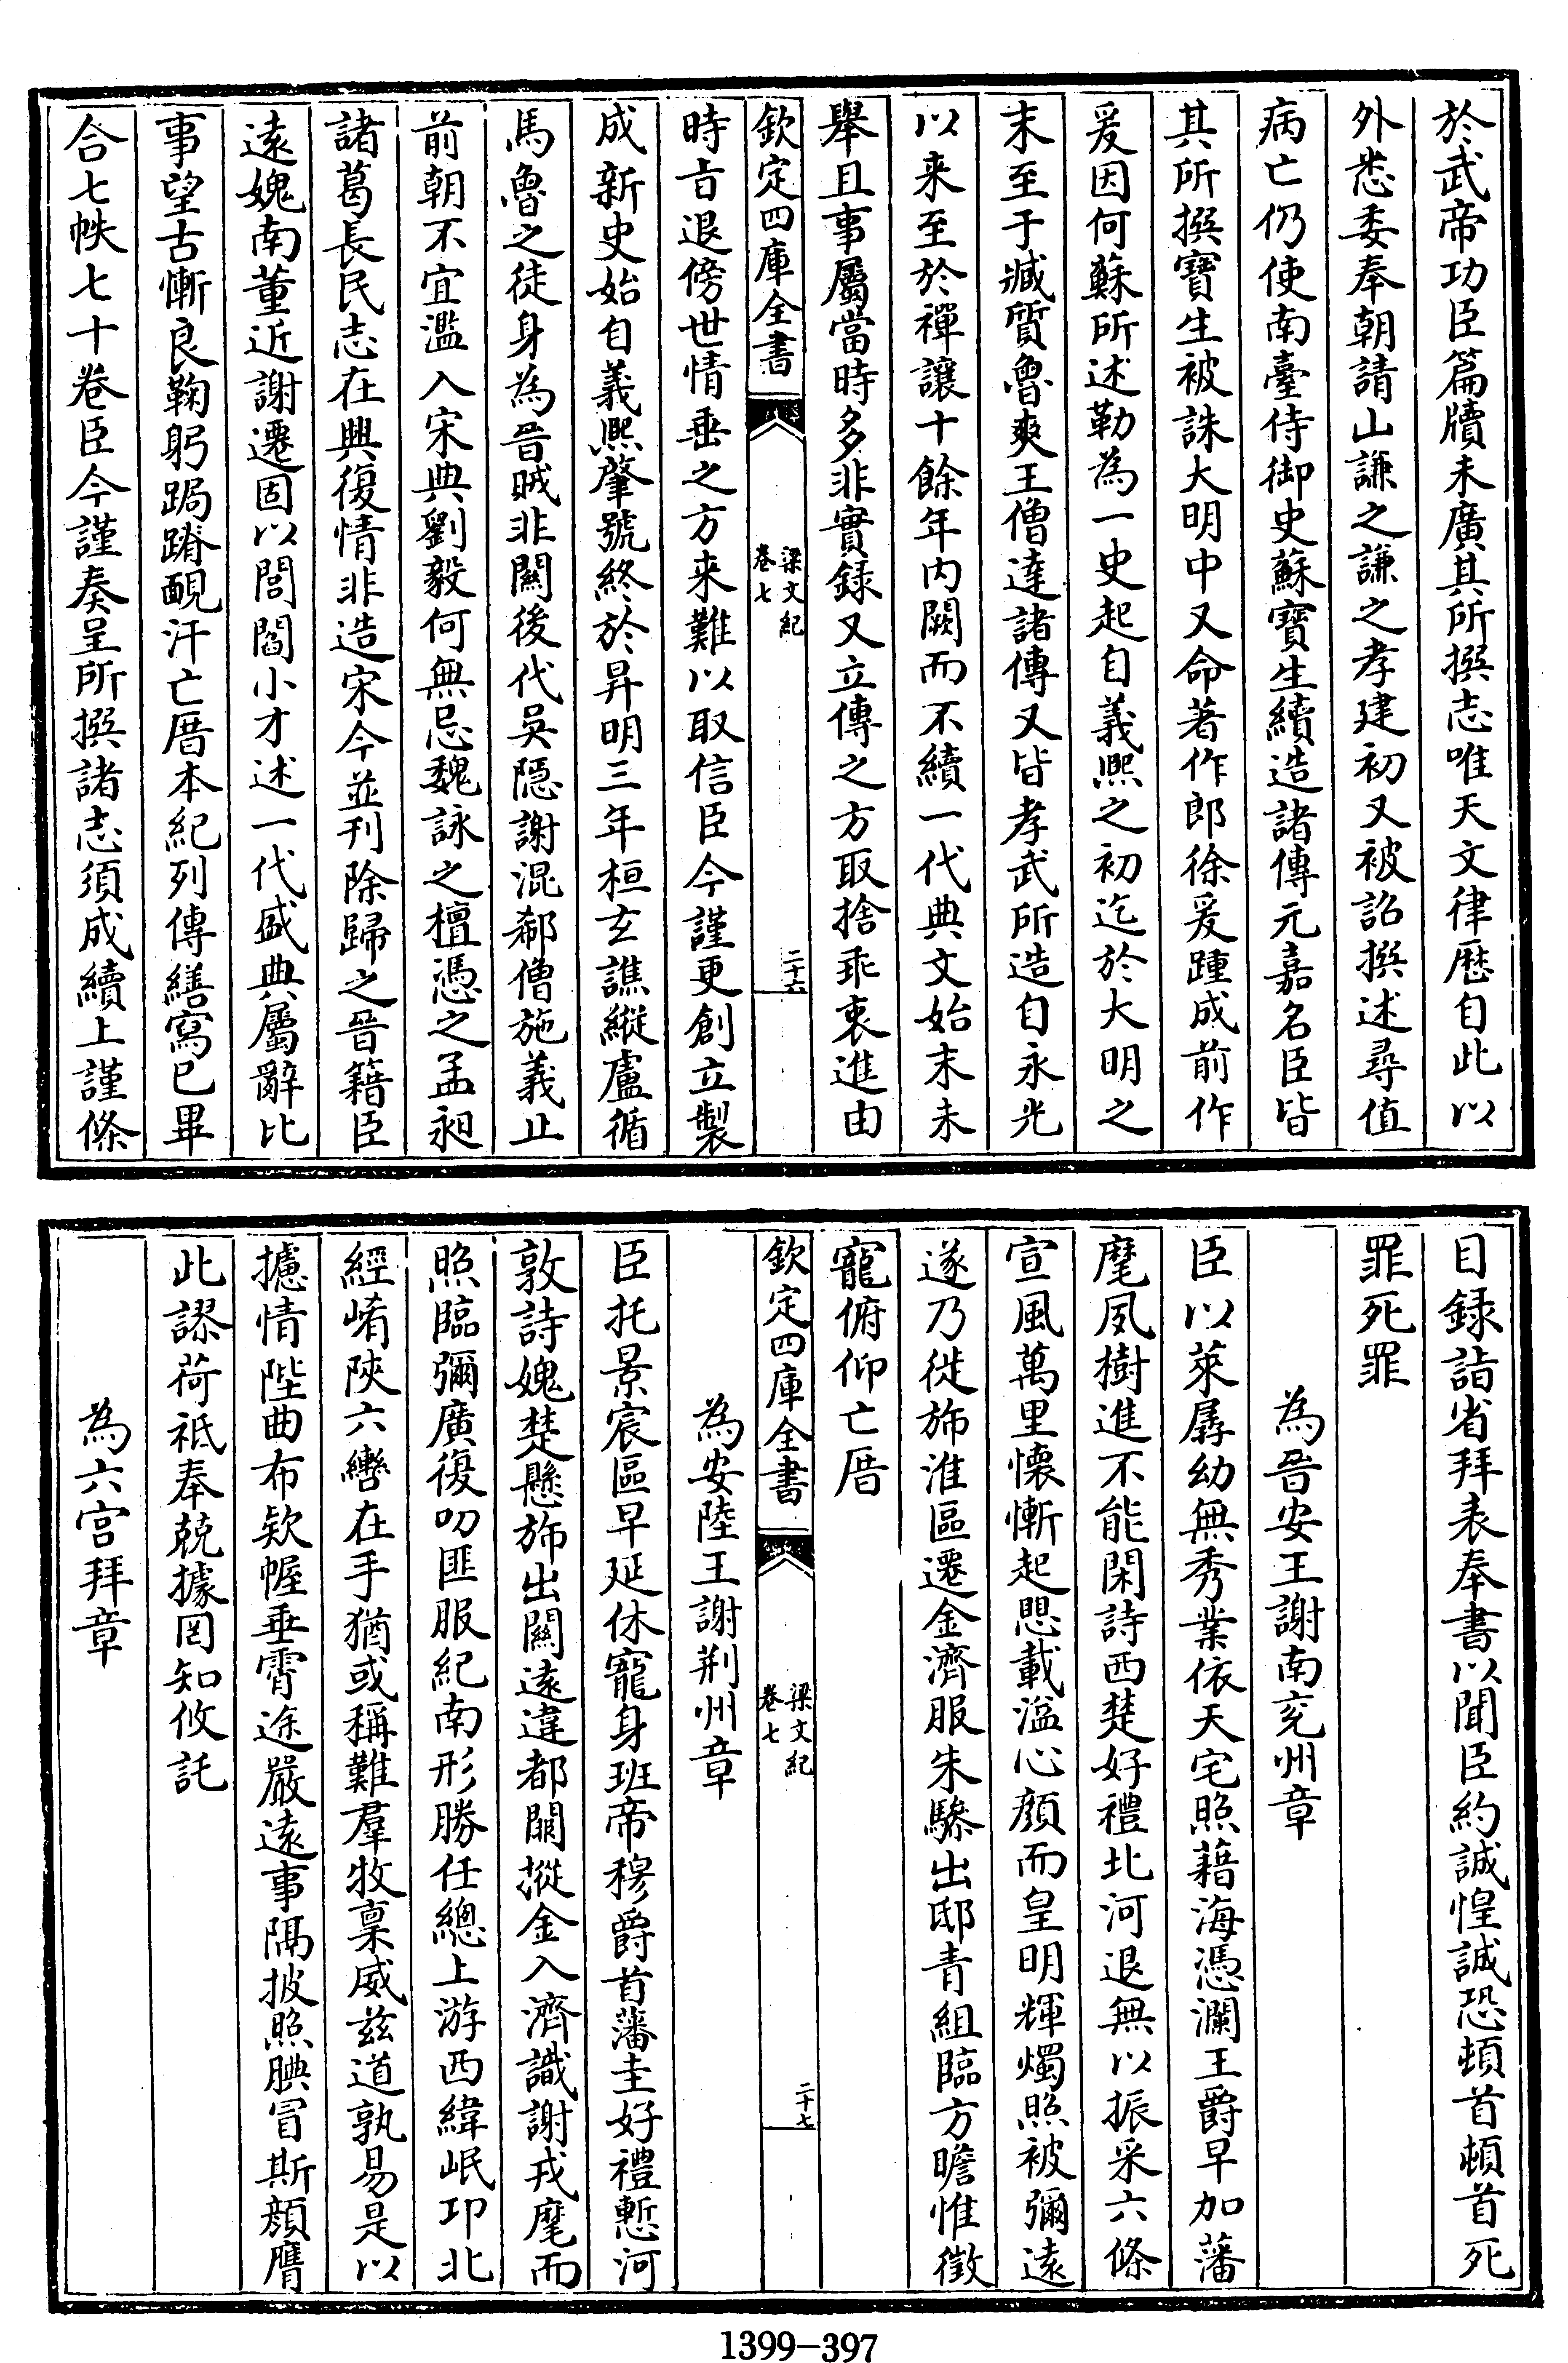 於武帝功臣篇牘未廣其所撰志唯天文律厯自此以
外悉委奉朝請山謙之謙之孝建初又被詔撰述尋值
病亡仍使南臺侍御史蘇寶生續造諸傳元嘉名臣皆
其所撰寶生被誅大明中又命著作郎徐爰踵成前作
爰因何蘇所述勒為一史起自義熙之初迄於大明之
末至于臧質魯爽王僧達諸傳又皆孝武所造自永光
以来至於禪讓十餘年内闕而不續一代典文始末未
舉且事屬當時多非實録又立傳之方取捨乖衷進由
欽定四庫全書
梁文紀
卷七
二十六
時旨退傍世情垂之方来難以取信臣今謹更創立製
成新史始自義熙肇號終於昇明三年桓玄譙縱盧循
馬魯之徒身為晉賊非關後代吳隐謝混郗僧施義止
前朝不宜濫入宋典劉毅何無忌魏詠之檀憑之孟昶
諸葛長民志在興復情非造宋今並刊除歸之晉籍臣
遠媿南董近謝遷固以閭閻小才述一代盛典屬辭比
事望古慚良鞠躬跼蹐靦汗亡厝本紀列傳繕寫已畢
合七帙七十卷臣今謹奏呈所撰諸志須成續上謹條
目録詣省拜表奉書以聞臣約誠惶誠恐頓首頓首死
罪死罪
為晉安王謝南兖州章
臣以萊孱幼無秀業依天宅照藉海憑瀾王爵早加藩
麾夙樹進不能閑詩西楚好禮北河退無以振采六條
宣風萬里懐慚起愳載溢心顔而皇明輝燭照被彌遠
遂乃徙斾淮區遷金濟服朱驂出邸青組臨方瞻惟徵
寵俯仰亡厝
欽定四庫全書
梁文紀
卷七
二十七
為安陸王謝荆州章
臣托景宸區早延休寵身班帝穆爵首藩圭好禮慙河
敦詩媿楚懸斾出關遠違都闕摐金入濟識謝戎麾而
照臨彌廣復叨匪服紀南形勝任總上游西緯岷卭北
經崤陜六轡在手猶或稱難羣牧稟威兹道孰易是以
攄情陛曲布欵幄垂霄途嚴遠事隔披照腆冒斯顔膺
此謬荷祗奉兢據罔知攸託
為六宫拜章
1399-397